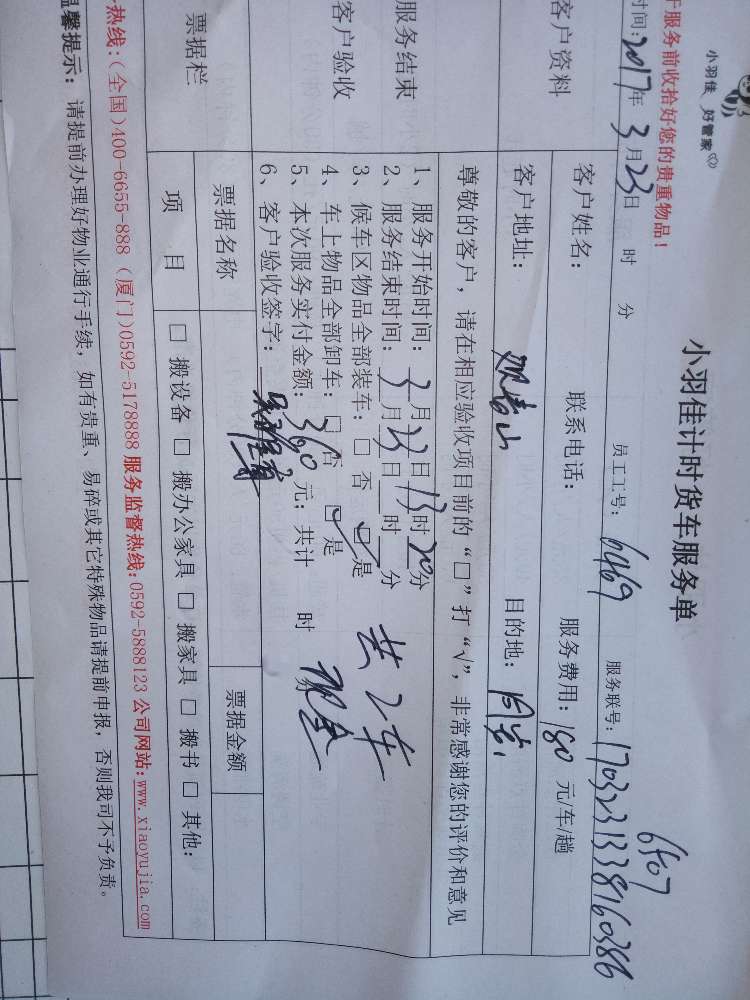 小羽佳 好管家
小羽佳计时货车服务单
于服务前收拾好您的贵重物品!
6507
时间:2017年3月23日 时 分 员工工号:6469 服务联号:1703231338160386
客户资料
客户姓名: 联系电话: 服务费用:180元/车/趟
客户地址:观音山 目的地:
尊敬的客户,请在相应验收项目前的“□”打“√”,非常感谢您的评价和意见
服务结束
客户验收
1、服务开始时间:3月23日13时20分
2、服务结束时间:3月23日 时 分
3、候车区物品全部装车:□否 ☑是
4、车上物品全部卸车:□否 ☑是
5、本次服务实付金额:360元;共计 时
6、客户验收签字:
共2车
现金
票据栏
票据名称 票据金额
项目 □搬设备 □搬办公家具 □搬家具 □搬书 □其他:
热线:(全国)400-6655-888 (厦门)0592-5178888 服务监督热线:0592-5888123 公司网站:www.xiaoyujia.com
温馨提示:请提前办理好物业通行手续,如有贵重、易碎或其它特殊物品请提前申报,否则我司不予负责。